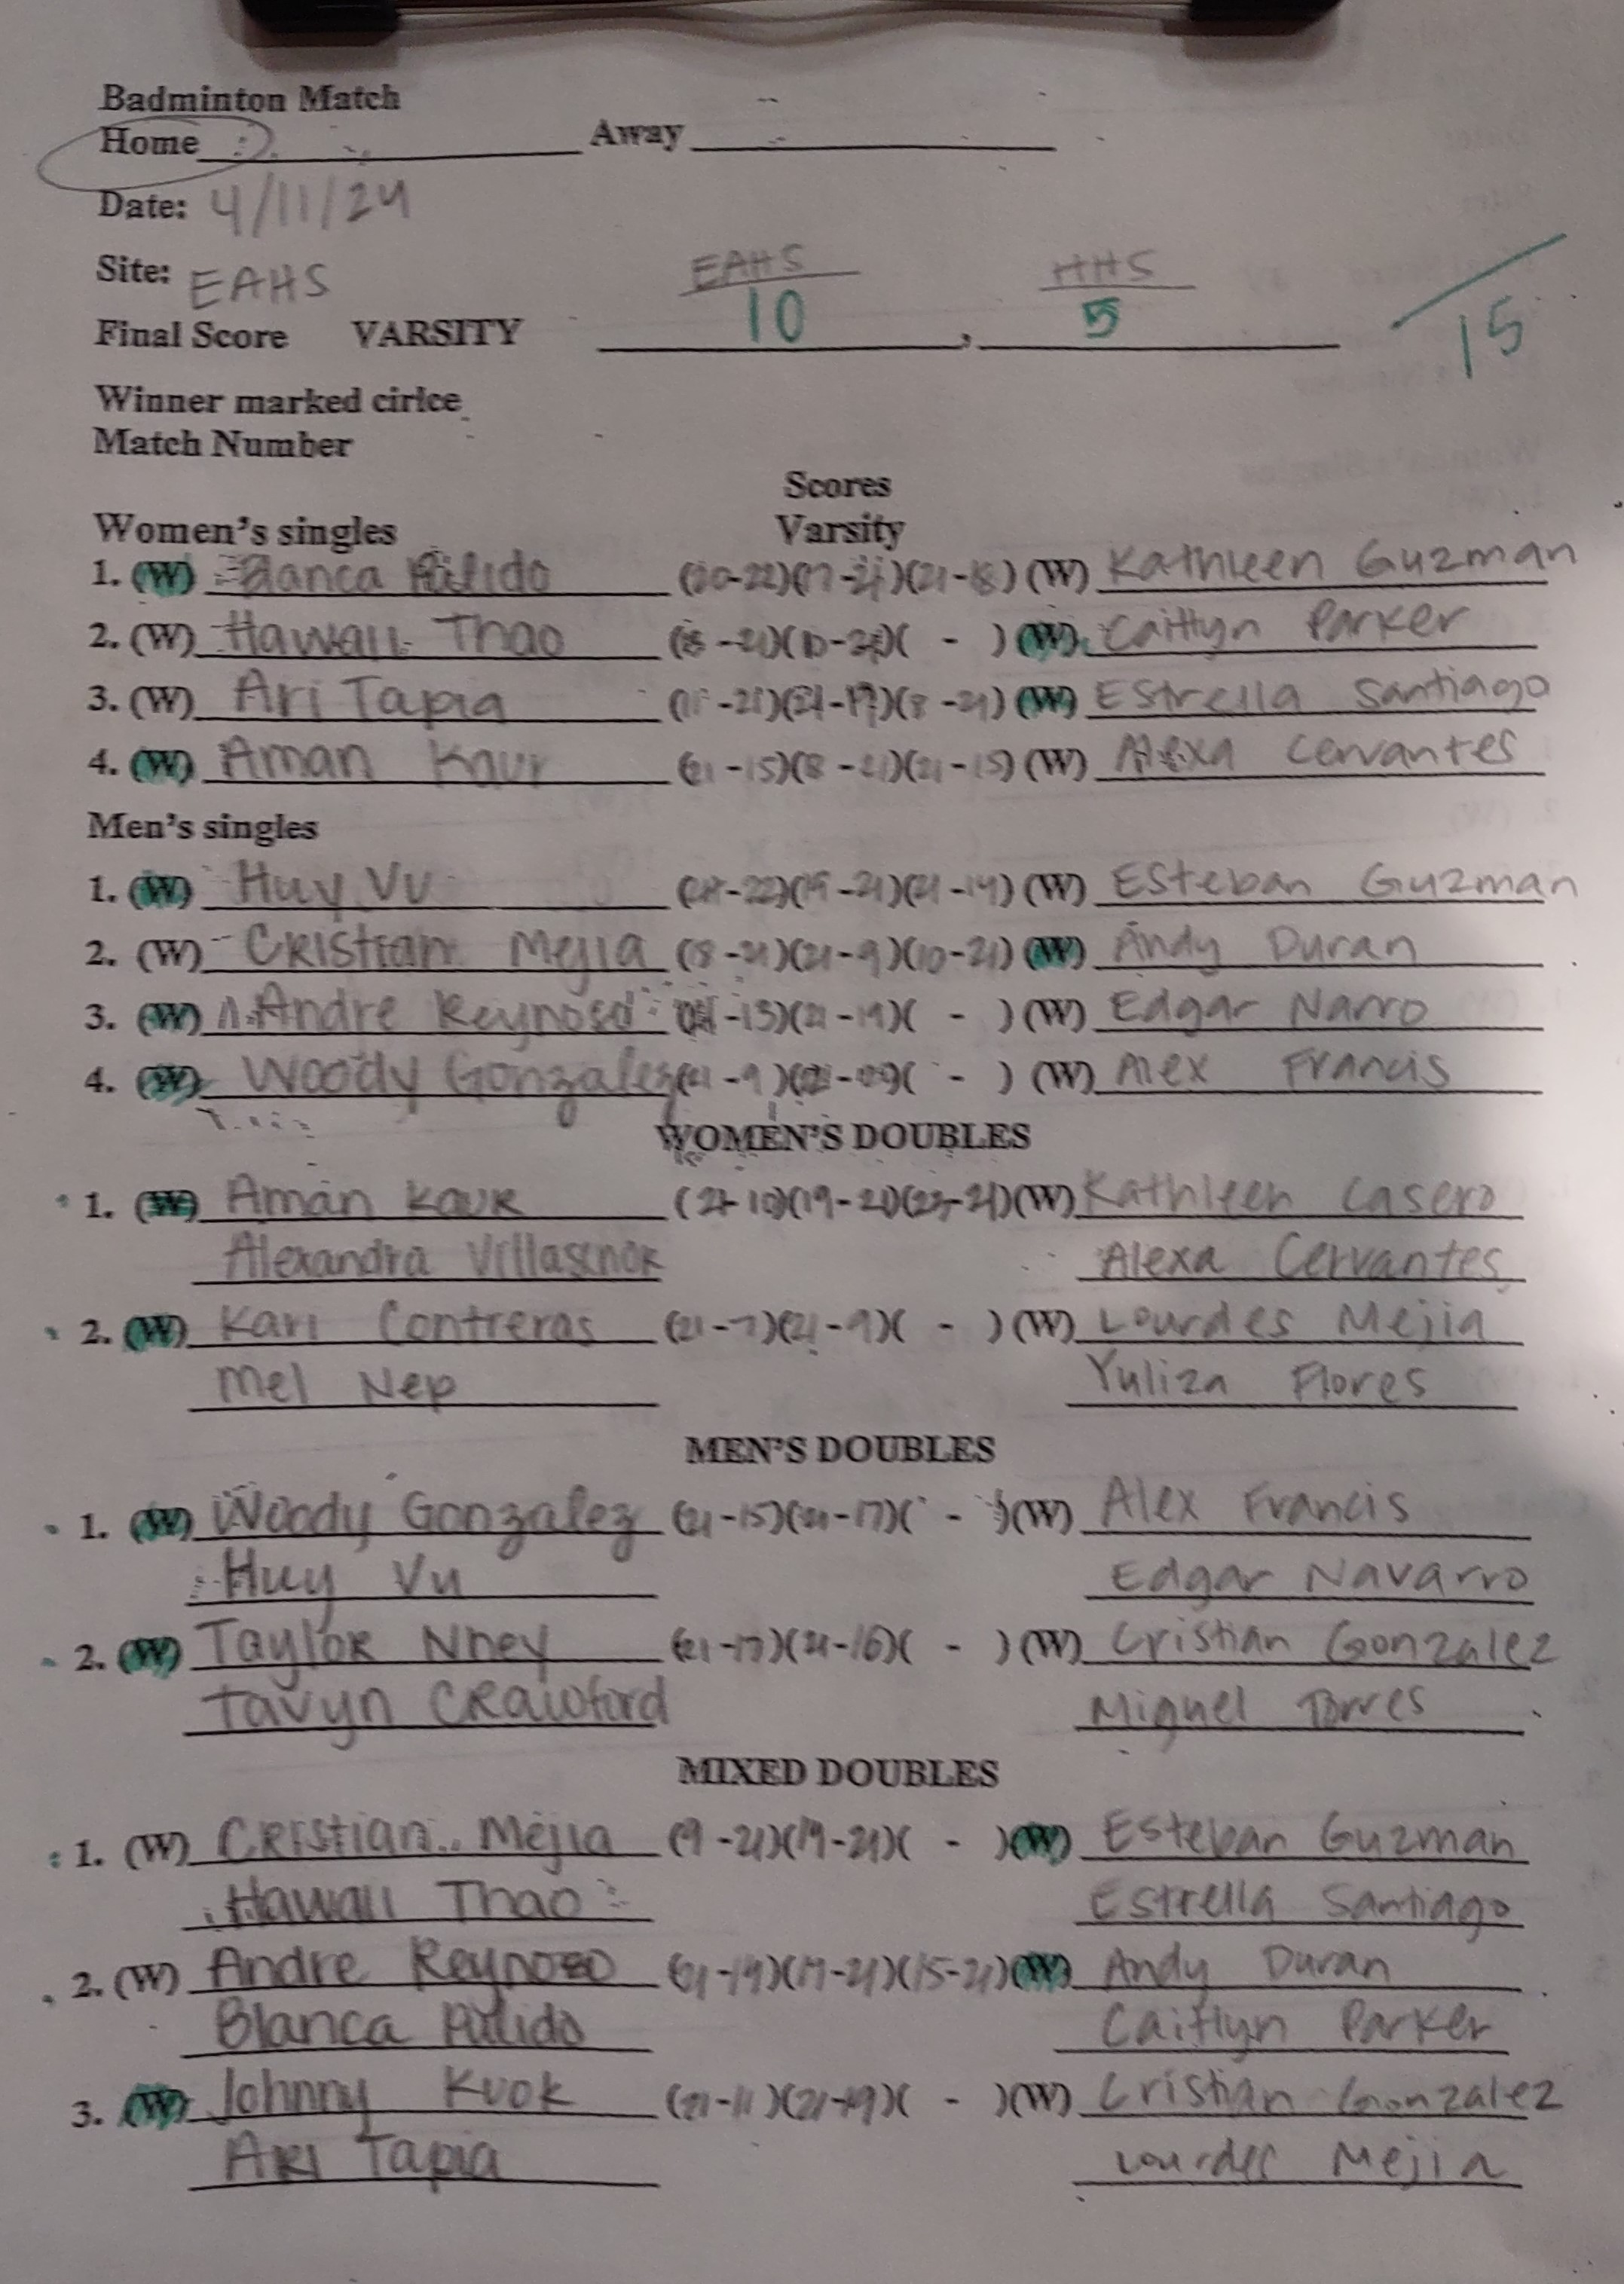 Badminton Match
Home Away
Date: 4/11/24
Site: EAHS EAHS HHS
Final Score VARSITY 10 , 5 /15
Winner marked cirlce
Match Number
Scores
Women's singles Varsity
1. (W) Blanca Pulido (20-22)(17-21)(21-18) (W) Kathleen Guzman
2. (W) Hawaii Thao ( -21)(10-21)( - ) (W) Caitlyn Parker
3. (W) Ari Tapia ( -21)(21-17)(8-21) (W) Estrella Santiago
4. (W) Aman Kaur (21-15)(8-21)(21-15) (W) Alexa Cervantes
Men's singles
1. (W) Huy Vu ( -22)(19-21)(21-14) (W) Esteban Guzman
2. (W) Cristian Mejia (18-21)(21-9)(10-21) (W) Andy Duran
3. (W) Andre Reynoso (21-13)(21-19)( - ) (W) Edgar Narro
4. (W) Woody Gonzalez (21-9)(21-09)( - ) (W) Alex Francis
WOMEN'S DOUBLES
1. (W) Aman Kaur (21-10)(19-21)(23-21)(W) Kathleen Casero
Alexandra Villasenor Alexa Cervantes
2. (W) Kari Contreras (21-7)(21-9)( - ) (W) Lourdes Mejia
Mel Nep Yuliza Flores
MEN'S DOUBLES
1. (W) Woody Gonzalez (21-15)(21-17)( - )(W) Alex Francis
Huy Vu Edgar Navarro
2. (W) Taylor Nhey (21-17)(21-16)( - ) (W) Cristian Gonzalez
Tavyn Crawford Miguel Torres
MIXED DOUBLES
1. (W) Cristian Mejia (9-21)(19-21)( - )(W) Esteban Guzman
Hawaii Thao Estrella Santiago
2. (W) Andre Reynoso (21-19)(17-21)(15-21)(W) Andy Duran
Blanca Pulido Caitlyn Parker
3. (W) Johnny Kuok (21-11)(21-19)( - )(W) Cristian Gonzalez
Ari Tapia Lourdes Mejia